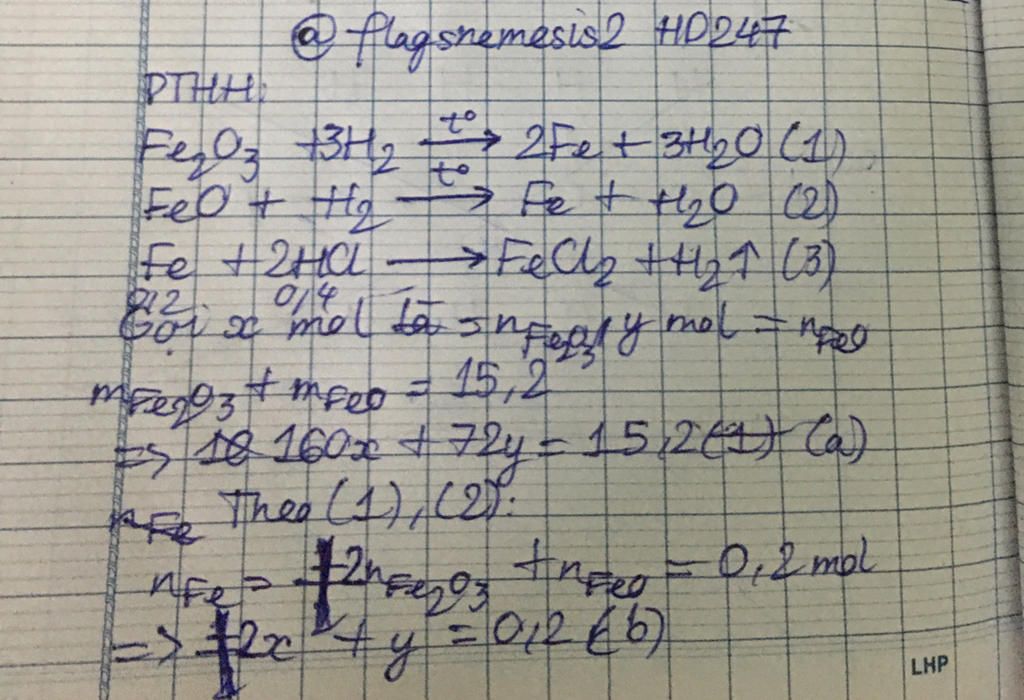 @flagsnemesis2 HD247
PTHH:
Fe₂O₃ +3H₂ —t°→ 2Fe + 3H₂O (1)
FeO + H₂ —t°→ Fe + H₂O (2)
Fe + 2HCl → FeCl₂ + H₂↑ (3)
0,2 0,4
Gọi x mol là = nFe₂O₃, y mol = nFeO
mFe₂O₃ + mFeO = 15,2
=> 160x + 72y = 15,2 (a)
nFe Theo (1), (2):
nFe = 2nFe₂O₃ + nFeO = 0,2 mol
=> 2x + y = 0,2 (b)
LHP